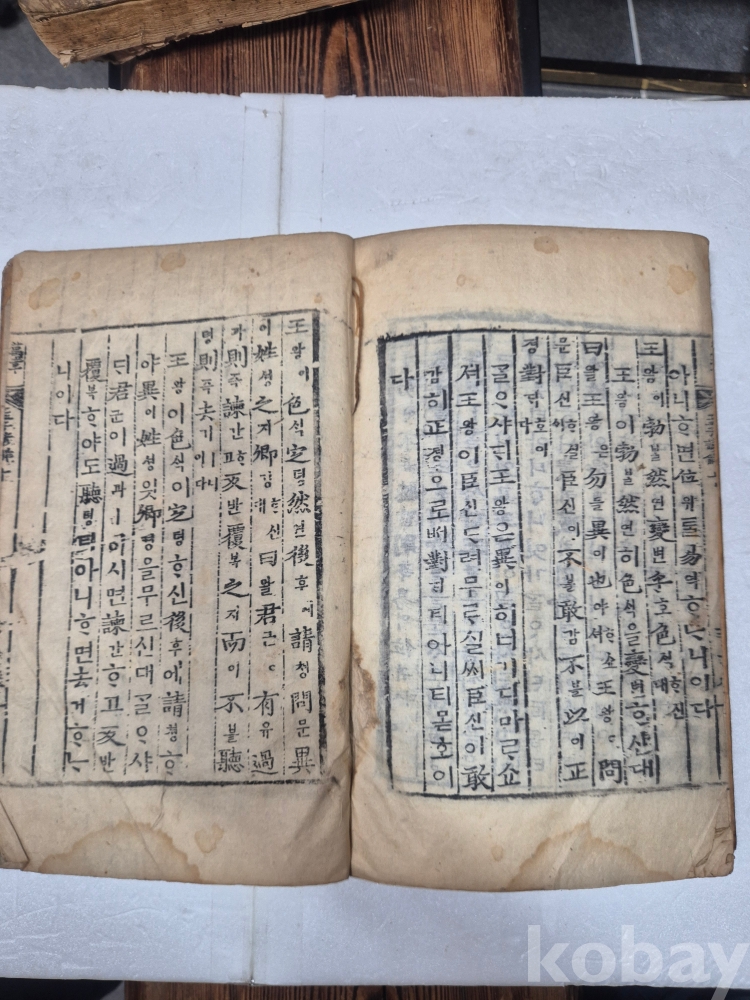 아니ᄒᆞ면位위ᄅᆞᆯ易역ᄒᆞᄂᆞ니이다
王왕이勃불然연變변乎호色ᄉᆡᆨᄒᆞ신대
王왕이勃불然연히色ᄉᆡᆨ을變변ᄒᆞ샨대
曰왈王왕은勿믈異이也야ᄒᆞ쇼셔王왕이問
문臣신ᄒᆞ실ᄉᆡ臣신이不블敢감不블以이正
졍對ᄃᆡ호이다
ᄀᆞᆯᄋᆞ샤ᄃᆡ王왕은異이히너기디마ᄅᆞ쇼
셔王왕이臣신ᄃᆞ려무르실ᄊᆡ臣신이敢
감히正졍으로ᄡᅥ對ᄃᆡ티아니티몯호이
다
王왕이色ᄉᆡᆨ定뎡然연後후에請쳥問문異
이姓셩之지卿경ᄒᆞ신대曰왈君군이有유過
과則즉諫간ᄒᆞ고反반覆복之지而이不블聽
텽則즉去거ㅣ니이다
王왕이色ᄉᆡᆨ이定뎡ᄒᆞ신後후에請쳥ᄒᆞ
야異이姓셩읫卿경을무르신대ᄀᆞᆯᄋᆞ샤
ᄃᆡ君군이過과ㅣ이시면諫간ᄒᆞ고反반
覆복ᄒᆞ야도聽텽티아니ᄒᆞ면去거ᄒᆞᄂᆞ
니이다
kobay